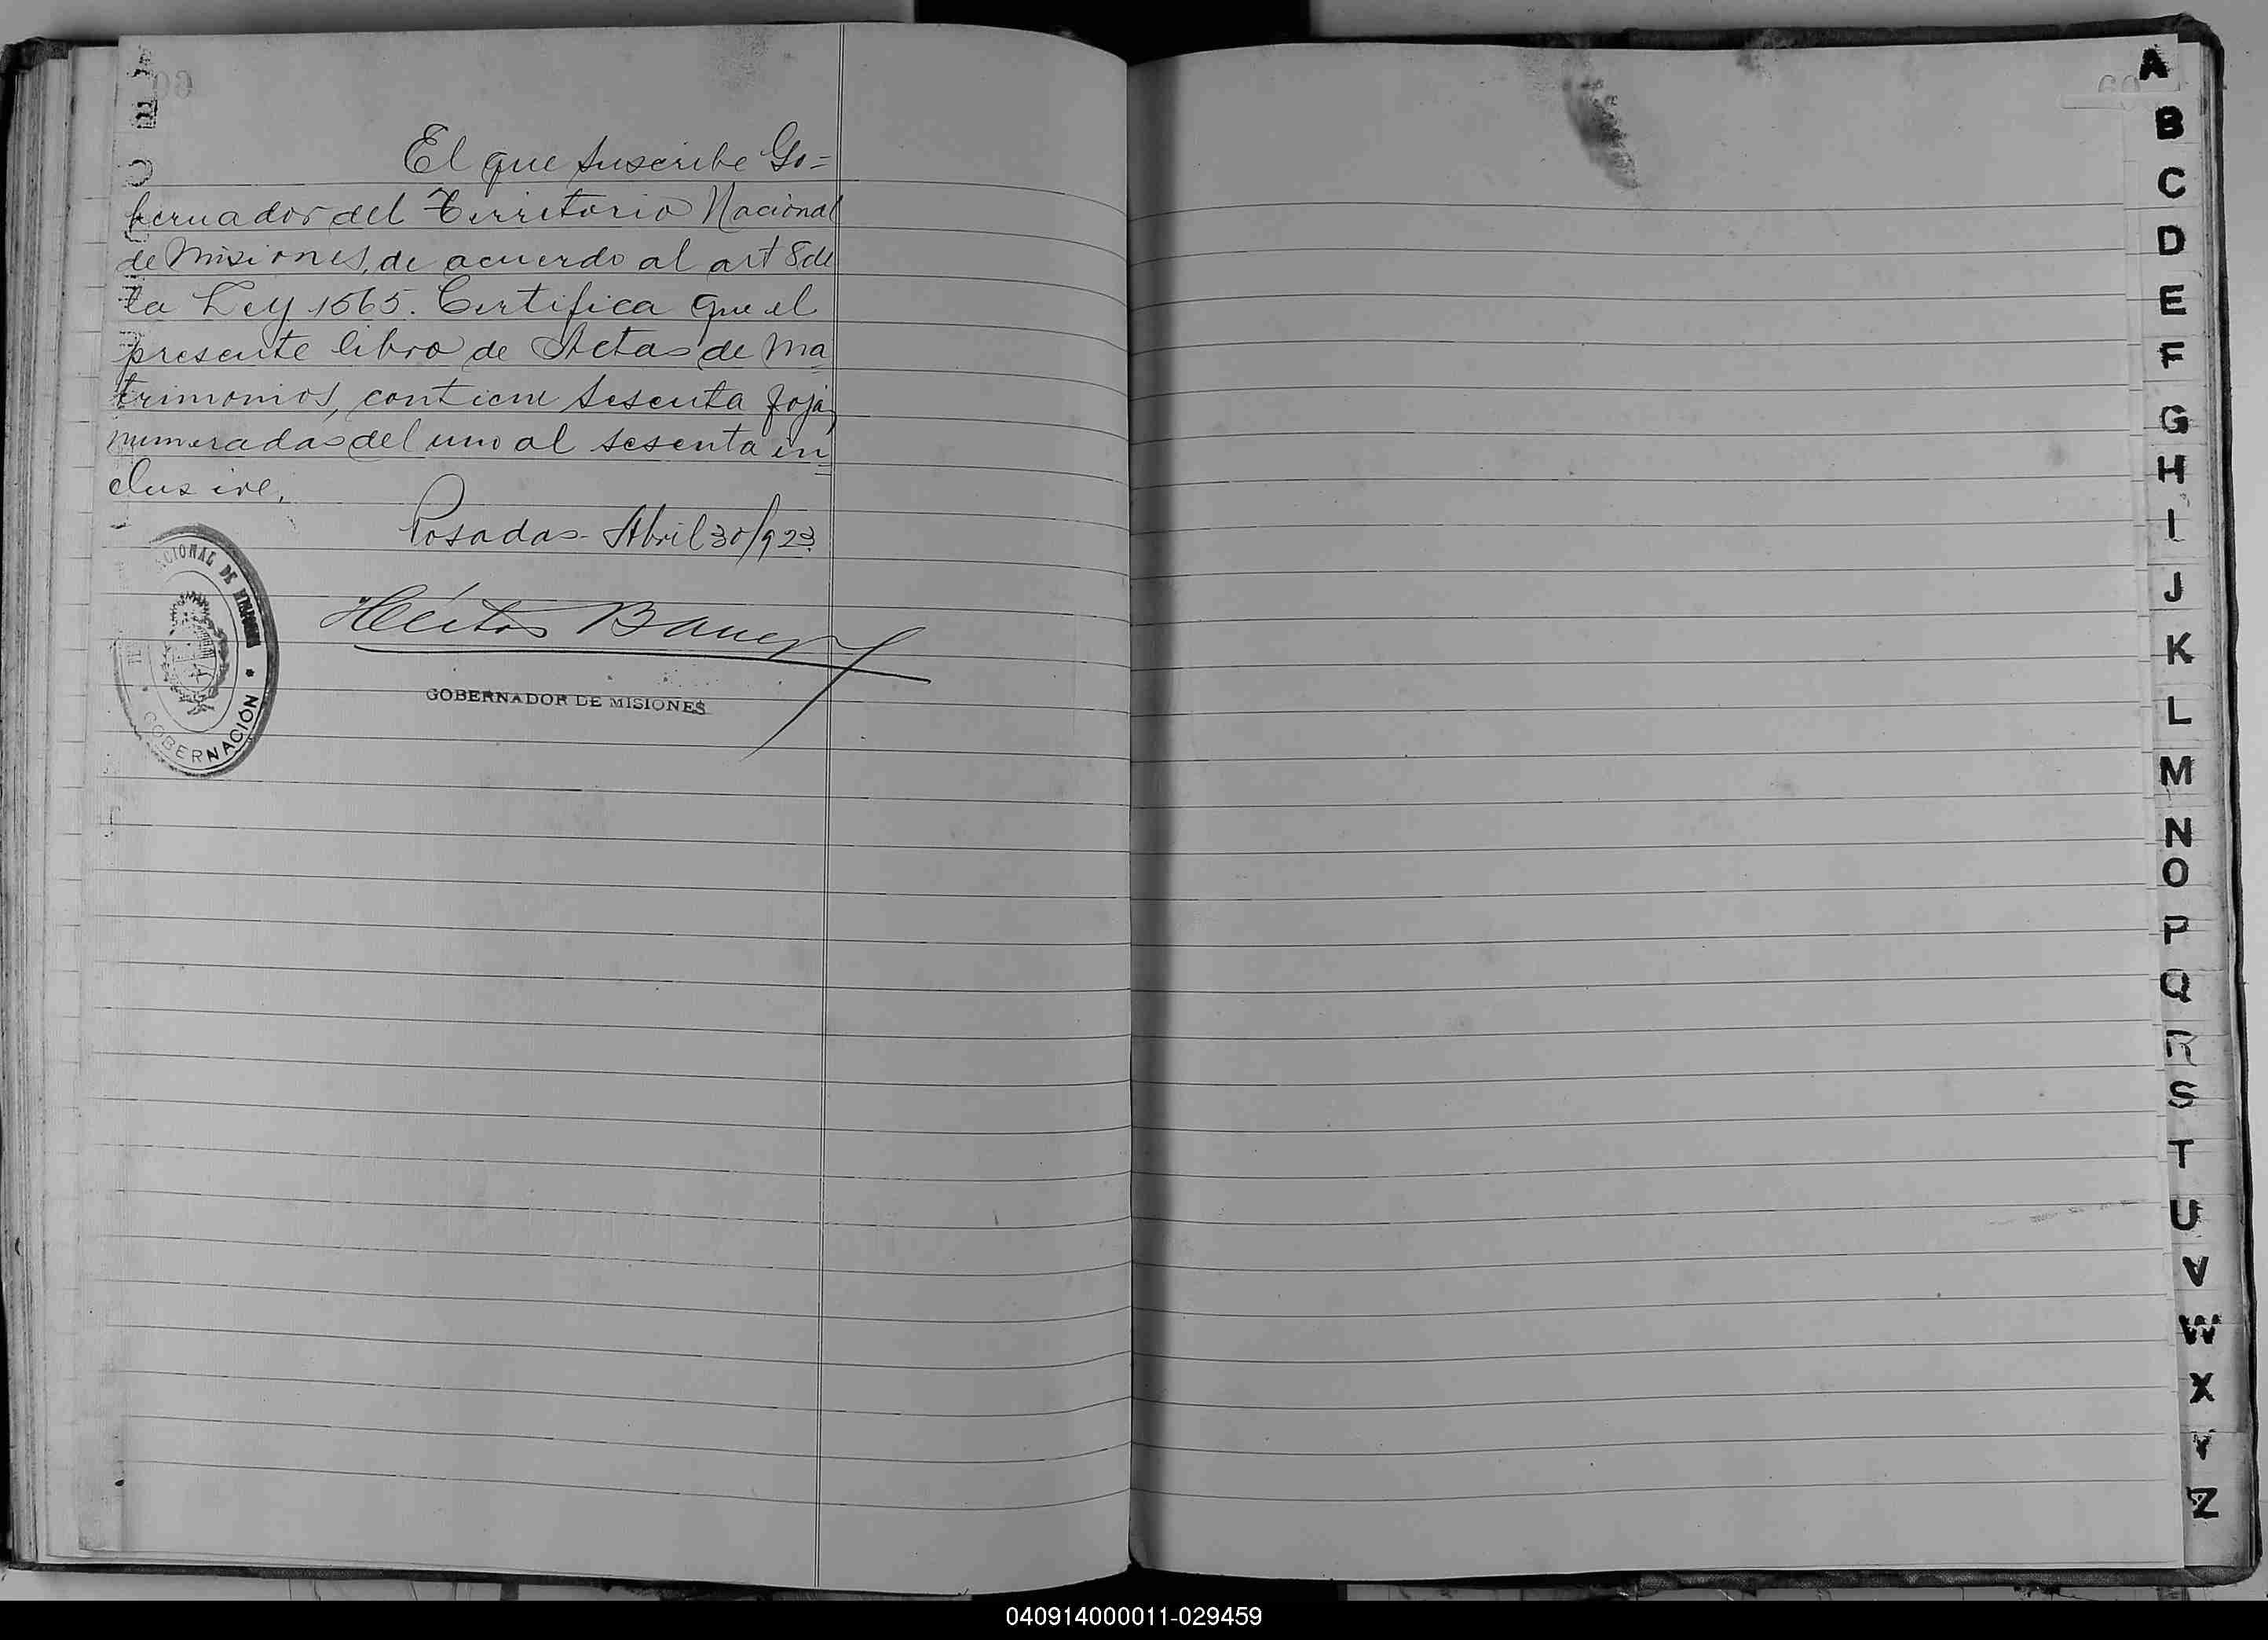 El que suscribe Go=
bernador del Territorio Nacional
de Misiones, de acuerdo al art 8 de
la Ley 1565. Certifica que el
presente libro de Actas de Ma
trimonios, contiene sesenta fojas
numeradas del uno al sesenta in
clusive.
Posadas - Abril 30/923.
Héctor
GOBERNADOR DE MISIONES
CIONAL DE MISIONES
GOBERNACIÓN
A
B
C
D
E
F
G
H
I
J
K
L
M
N
O
P
Q
R
S
T
U
V
W
X
Y
Z
040914000011-029459